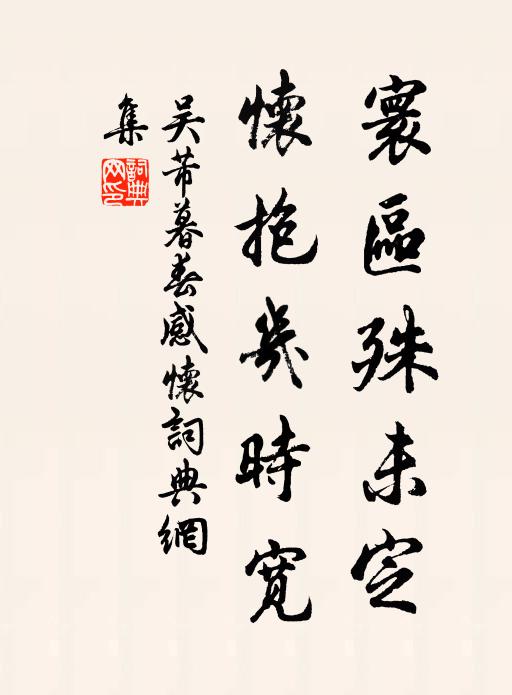 寰區殊未定
懷抱幾時寬
吴芾暮春感懷詞典網
集
詞典網印